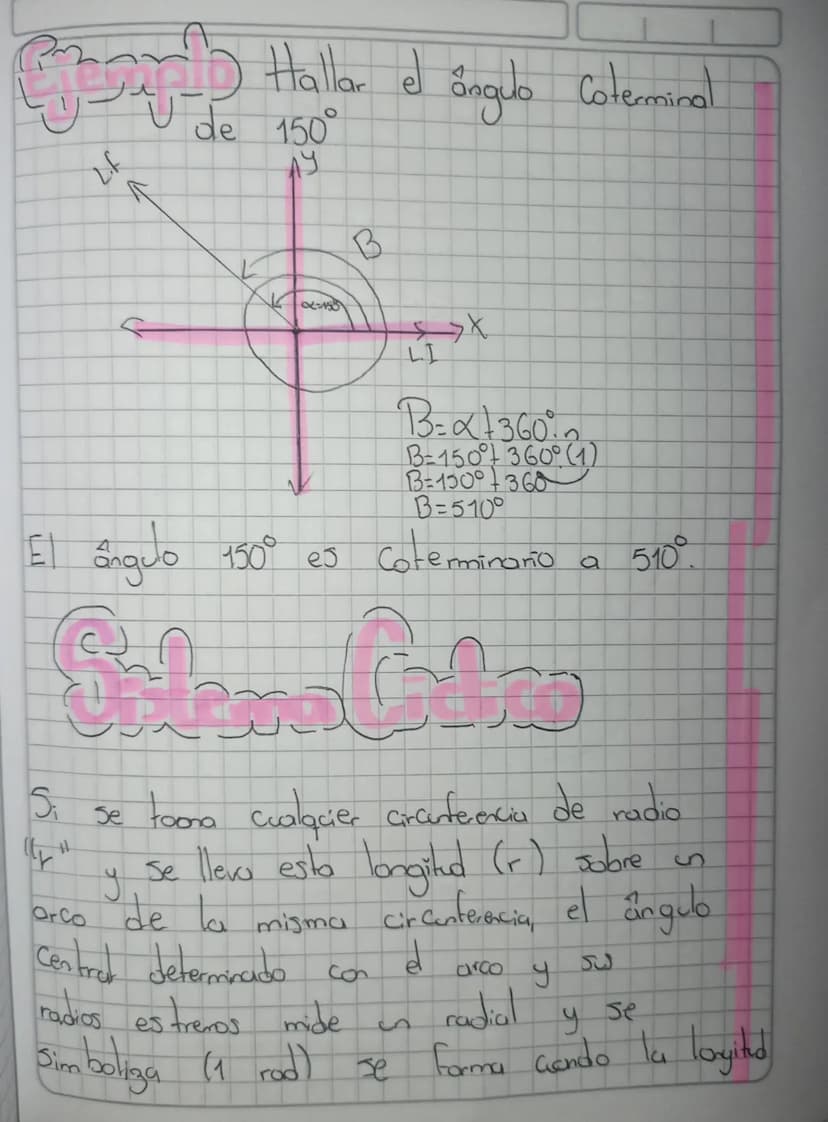 Ejemplo Hallar el ángulo Coterminal
de 150°
Lf
y
B
α=150
x
LI
B=α+360°.n
B=150°+360°(1)
B=150°+360
B=510°
El ángulo 150° es Coterminario a 510°.
Sistema Ciclico
Si se tooma cualqcier circunferencia de radio
"r" y se lleva esta longitud (r) sobre un
arco de la misma circunferencia, el ángulo
Central determinado con el arco y sus
radios estremos mide un radial y se
simboliza (1 rad) se forma cuando la longitud